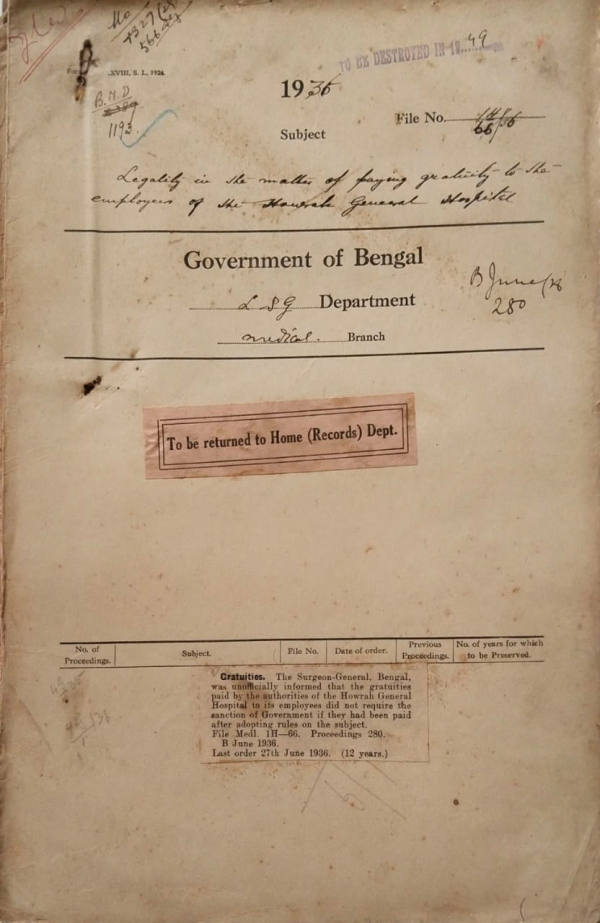 TO BE DESTROYED IN 19 49
XVIII, S. L., 1924
B. M. D
1193
1936
File No. 1H/66/36
Subject
Legality in the matter of paying gratuity to the
employees of the Howrah General Hospital
Government of Bengal
L S G Department
Medical. Branch
B June/36
280
To be returned to Home (Records) Dept.
No. of Proceedings. Subject. File No. Date of order. Previous Proceedings. No. of years for which to be Preserved.
Gratuities. The Surgeon-General, Bengal,
was unofficially informed that the gratuities
paid by the authorities of the Howrah General
Hospital to its employees did not require the
sanction of Government if they had been paid
after adopting rules on the subject.
File Medl. 1H—66. Proceedings 280.
B June 1936.
Last order 27th June 1936. (12 years.)